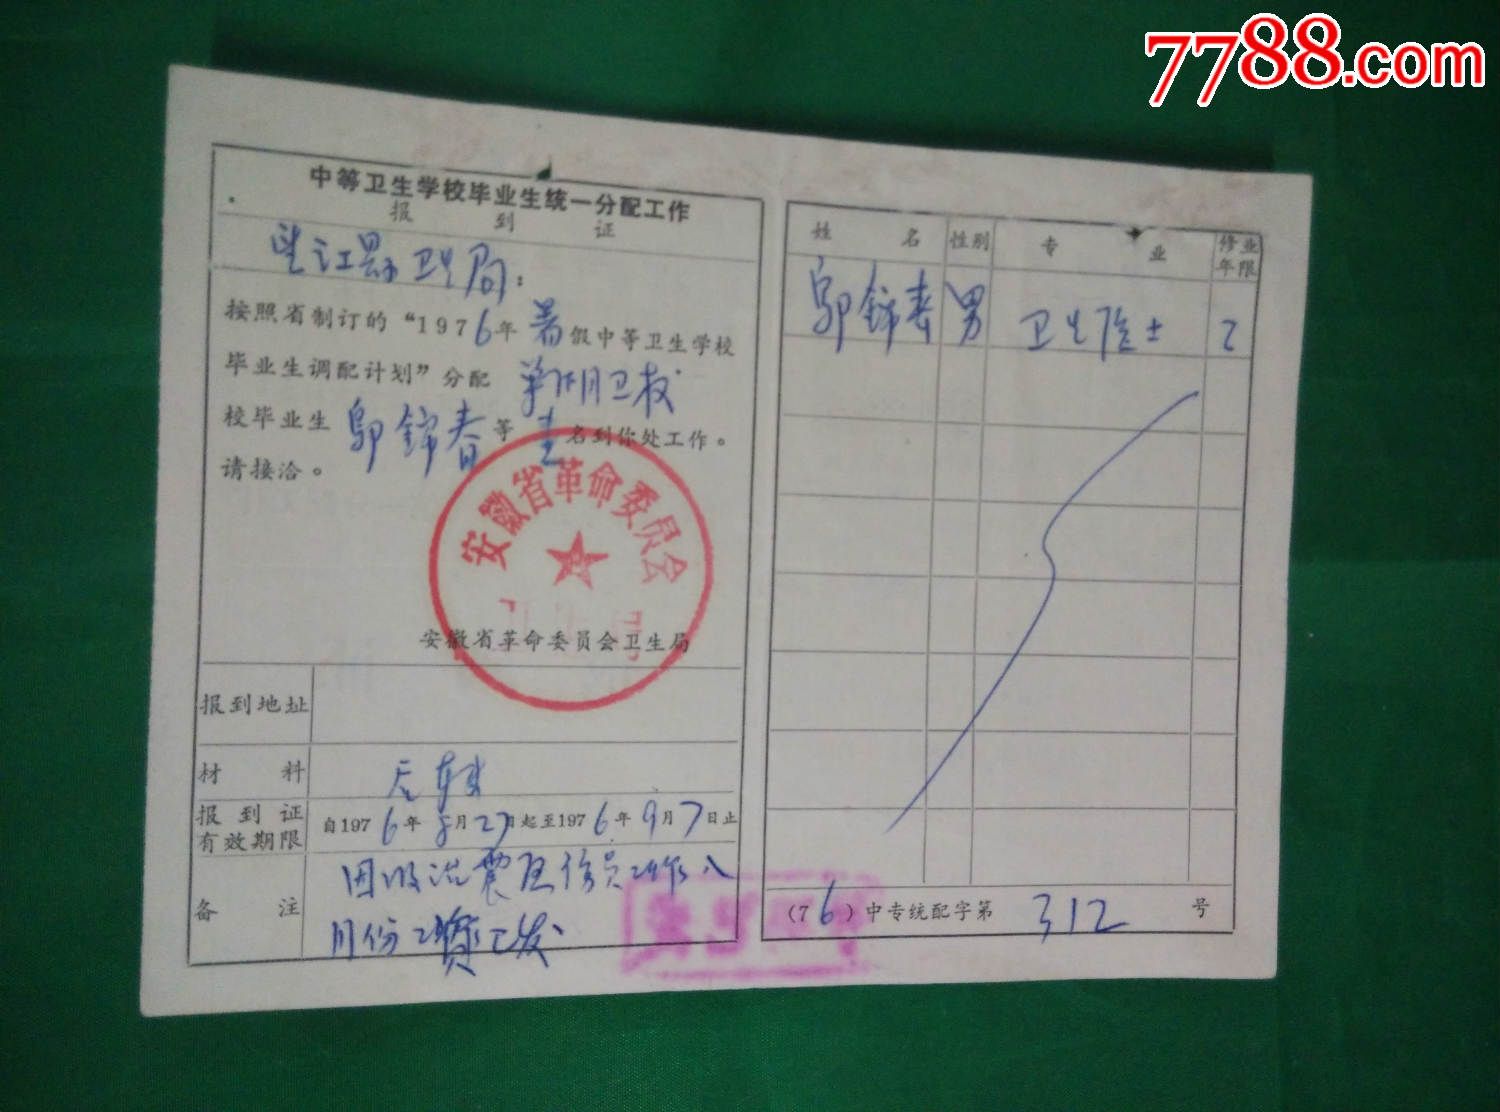 7788.com
中等卫生学校毕业生统一分配工作
报到证
望江县卫生局：
按照省制订的“1976年暑假中等卫生学校
毕业生调配计划”分配
卫校
校毕业生鄔錦春等壹名到你处工作。
请接洽。
安徽省革命委员会
安徽省革命委员会卫生局
报到地址
材料
报到证
有效期限
自1976年8月27日起至1976年9月7日止
备注
月份
已发
姓名 性别 专业 修业年限
鄔錦春 男 卫生医士 2
(76)中专统配字第312号